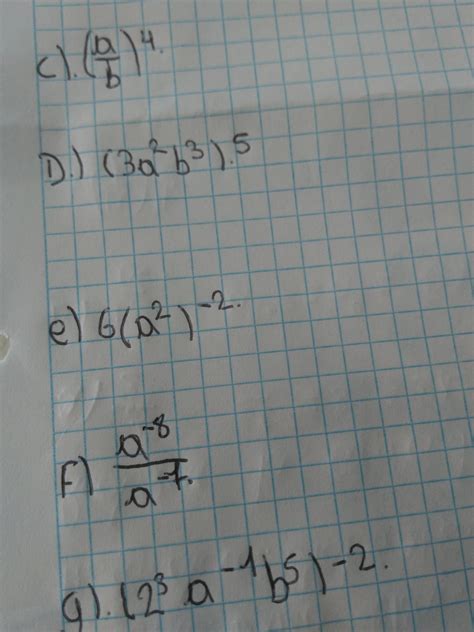 c). (a/b)^4.
D.) (3a²b³).^5
e) 6(a²)^-2.
F) a^-8/a^-7.
g). (2³ a^-1 b^5)^-2.